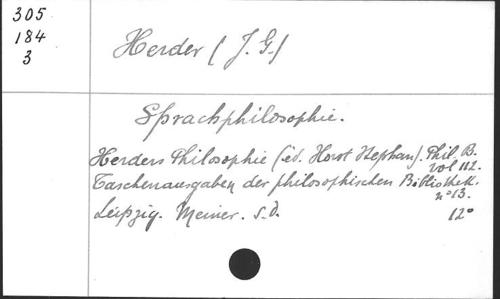 305
184
3
Herder (J. G.)
Sprachphilosophie.
Herders Philosophie (éd. Horst Stephan). Phil. B.
vol 112.
Taschenausgaben der philosophischen Bibliothek.
n° 13.
Leipzig. Meiner. s.d.
12°